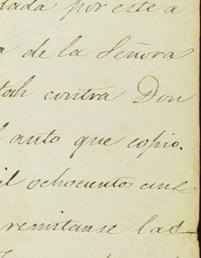 dada por este a
a de la Señora
tah contra Don
l auto que copio.
il ochocientos cin-
remitanse las